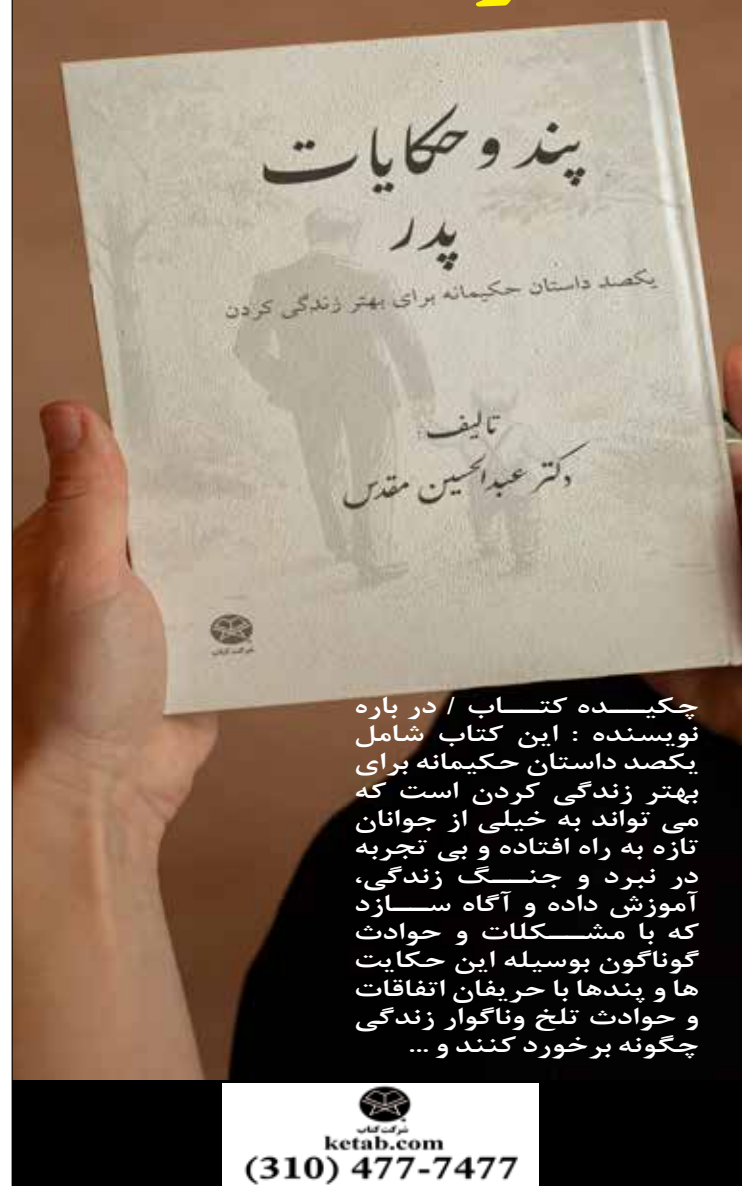 پند و حکایات
پدر
یکصد داستان حکیمانه برای بهتر زندگی کردن
تالیف:
دکتر عبدالحسین مقدس
شرکت کتاب
چکیـــده کتـــاب / در باره
نویسنده : این کتاب شامل
یکصد داستان حکیمانه برای
بهتر زندگی کردن است که
می تواند به خیلی از جوانان
تازه به راه افتاده و بی تجربه
در نبرد و جنـــگ زندگی،
آموزش داده و آگاه ســـازد
که با مشـــکلات و حوادث
گوناگون بوسیله این حکایت
ها و پندها با حریفان اتفاقات
و حوادث تلخ وناگوار زندگی
چگونه برخورد کنند و ...
شرکت کتاب
ketab.com
(310) 477-7477